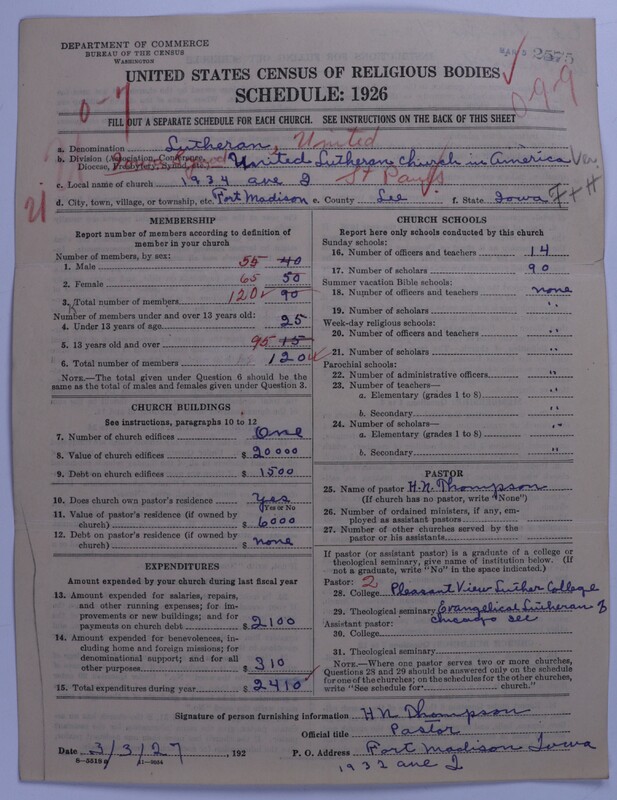 DEPARTMENT OF COMMERCE
BUREAU OF THE CENSUS
WASHINGTON
MAR 5 2575
UNITED STATES CENSUS OF RELIGIOUS BODIES
SCHEDULE: 1926
0-7
099
FILL OUT A SEPARATE SCHEDULE FOR EACH CHURCH. SEE INSTRUCTIONS ON THE BACK OF THIS SHEET
a. Denomination Lutheran, United
b. Division (Association, Conference, Diocese, Presbytery, Synod, etc.) United Lutheran church in America
c. Local name of church 1934 ave I St Pauls
d. City, town, village, or township, etc. Fort Madison e. County Lee f. State Iowa
MEMBERSHIP
Report number of members according to definition of member in your church
Number of members, by sex:
1. Male 55 40
2. Female 65 50
3. Total number of members 120 90
Number of members under and over 13 years old:
4. Under 13 years of age 25
5. 13 years old and over 95 15
6. Total number of members 120
NOTE.—The total given under Question 6 should be the same as the total of males and females given under Question 3.
CHURCH BUILDINGS
See instructions, paragraphs 10 to 12
7. Number of church edifices One
8. Value of church edifices $ 20000
9. Debt on church edifices $ 1500
10. Does church own pastor's residence Yes
Yes or No
11. Value of pastor's residence (if owned by church) $ 6000
12. Debt on pastor's residence (if owned by church) $ none
EXPENDITURES
Amount expended by your church during last fiscal year
13. Amount expended for salaries, repairs, and other running expenses; for improvements or new buildings; and for payments on church debt $ 2100
14. Amount expended for benevolences, including home and foreign missions; for denominational support; and for all other purposes $ 310
15. Total expenditures during year $ 2410
CHURCH SCHOOLS
Report here only schools conducted by this church
Sunday schools:
16. Number of officers and teachers 14
17. Number of scholars 90
Summer vacation Bible schools:
18. Number of officers and teachers none
19. Number of scholars "
Week-day religious schools:
20. Number of officers and teachers "
21. Number of scholars "
Parochial schools:
22. Number of administrative officers "
23. Number of teachers—
a. Elementary (grades 1 to 8) "
b. Secondary "
24. Number of scholars—
a. Elementary (grades 1 to 8) "
b. Secondary "
PASTOR
25. Name of pastor H. N. Thompson
(If church has no pastor, write "None")
26. Number of ordained ministers, if any, employed as assistant pastors
27. Number of other churches served by the pastor or his assistants
If pastor (or assistant pastor) is a graduate of a college or theological seminary, give name of institution below. (If not a graduate, write "No" in the space indicated.)
Pastor: 2
28. College Pleasant View Luther College
29. Theological seminary Evangelical Lutheran of
Chicago
Assistant pastor:
30. College
31. Theological seminary
NOTE.—Where one pastor serves two or more churches, Questions 28 and 29 should be answered only on the schedule for one of the churches; on the schedules for the other churches, write "See schedule for church."
Signature of person furnishing information H N Thompson
Official title Pastor
Date 3/3/27, 192 P. O. Address Fort Madison Iowa
1932 ave I